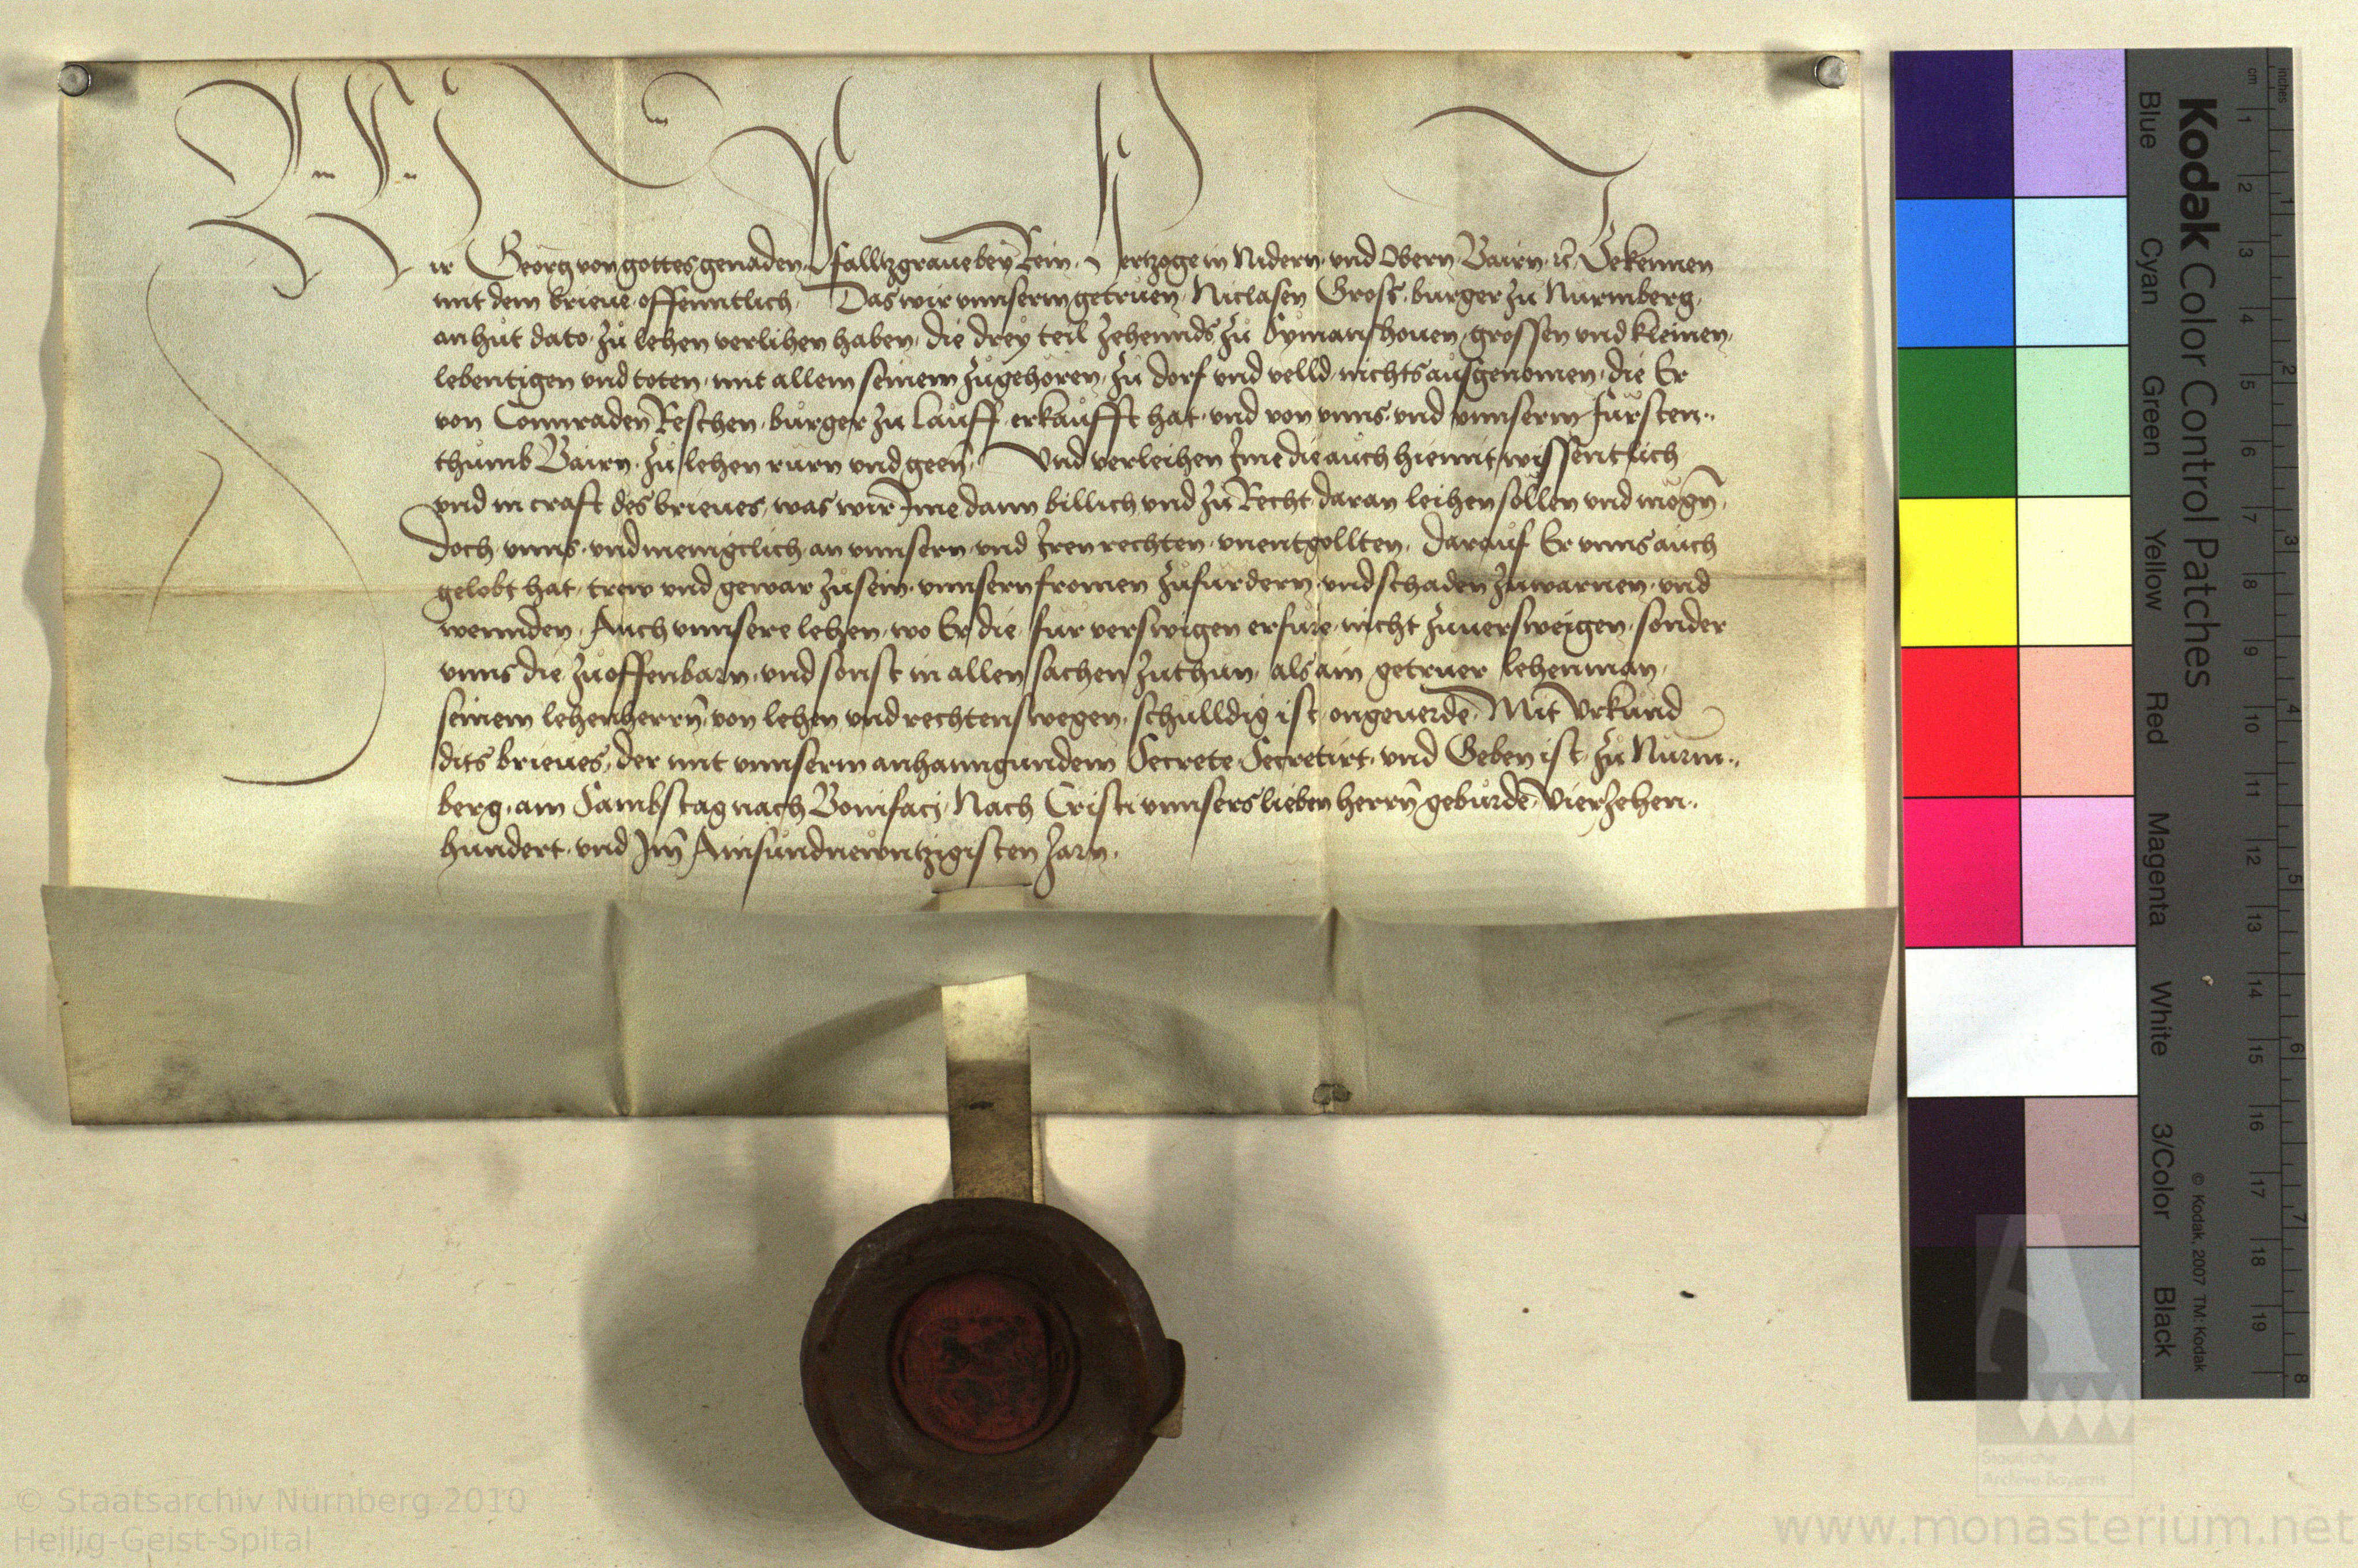 Wir Georg von gottes genaden Pfalltzgraue bey Rein Hertzoge in Nidern und Obern Bairn rc Bekennen
mit dem brieue offenntlich Das wir vnnserm getruen Niclasen Gross burger zu Nurmberg
an hut dato zu lehen verlihen haben die drey teil zehennds zu Symanshouen grossen und kleinen
lebentigen und toten mit allem seinem zugehoren zu dorf und velld nichts ausgenomen die Er
von Connraden Reschen burger zu Lauff erkaufft hat und von vnns und vnnserm fursten
thumb Bairn zu lehen rurn und geen Und verleihen Ime die auch hiemit wissentlich
und in craft des brieues was wir Ime dann billich und zu Recht daran leihen sollen und mogn
doch vnns und menigclich an vnnsern und Iren rechten vnentgollten darauf Er vnns auch
gelobt hat trew und gewar zusein vnnsern fromen zufurdern und schaden zuwarnen und
wennden Auch vnnsere lehen wo Er die fur verswigen erfure nicht zuuersweigen sonder
vnns die zuoffenbarn und sonst in allen sachen zuthun als ain getruer lehenman
seinem lehenherrn von lehen und rechtens wegen schulldig ist ongeuerde Mit Vrkund
dits brieues der mit vnnserm anhanngundem Secrete Secretirt und Geben ist zu Nurm
berg am Sambstag nach Bonifacj Nach Cristi vnnsers lieben herrn geburde Vierzehen
hundert und Im Ainsundnewntzigisten Jarn
Kodak Color Control Patches
Blue Cyan Green Yellow Red Magenta White 3/Color Black
© Kodak, 2007 TM: Kodak
cm 1 2 3 4 5 6 7 8 9 10 11 12 13 14 15 16 17 18 19
inches 1 2 3 4 5 6 7 8
© Staatsarchiv Nürnberg 2010
Heilig-Geist-Spital
Staatliche
Archive Bayerns
www.monasterium.net